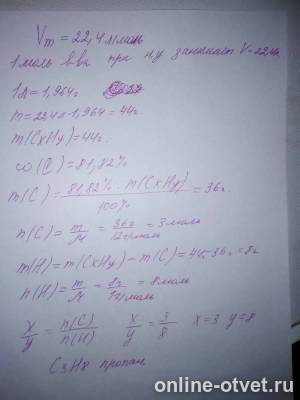 Vm = 22,4 л/моль
1 моль в-ва при н.у занимает V=22,4л
1л = 1,964г
m = 22,4 · 1,964 = 44г.
m(CxHy) = 44г.
ω(C) = 81,82%
m(C) = 81,82% · m(CxHy) / 100% = 36г
n(C) = m/M = 36г / 12г/моль = 3 моль
m(H) = m(CxHy) - m(C) = 44-36г = 8г
n(H) = m/M = 8г / 1г/моль = 8 моль
x/y = n(C)/n(H) x/y = 3/8 x=3 y=8
C3H8 пропан
online-otvet.ru